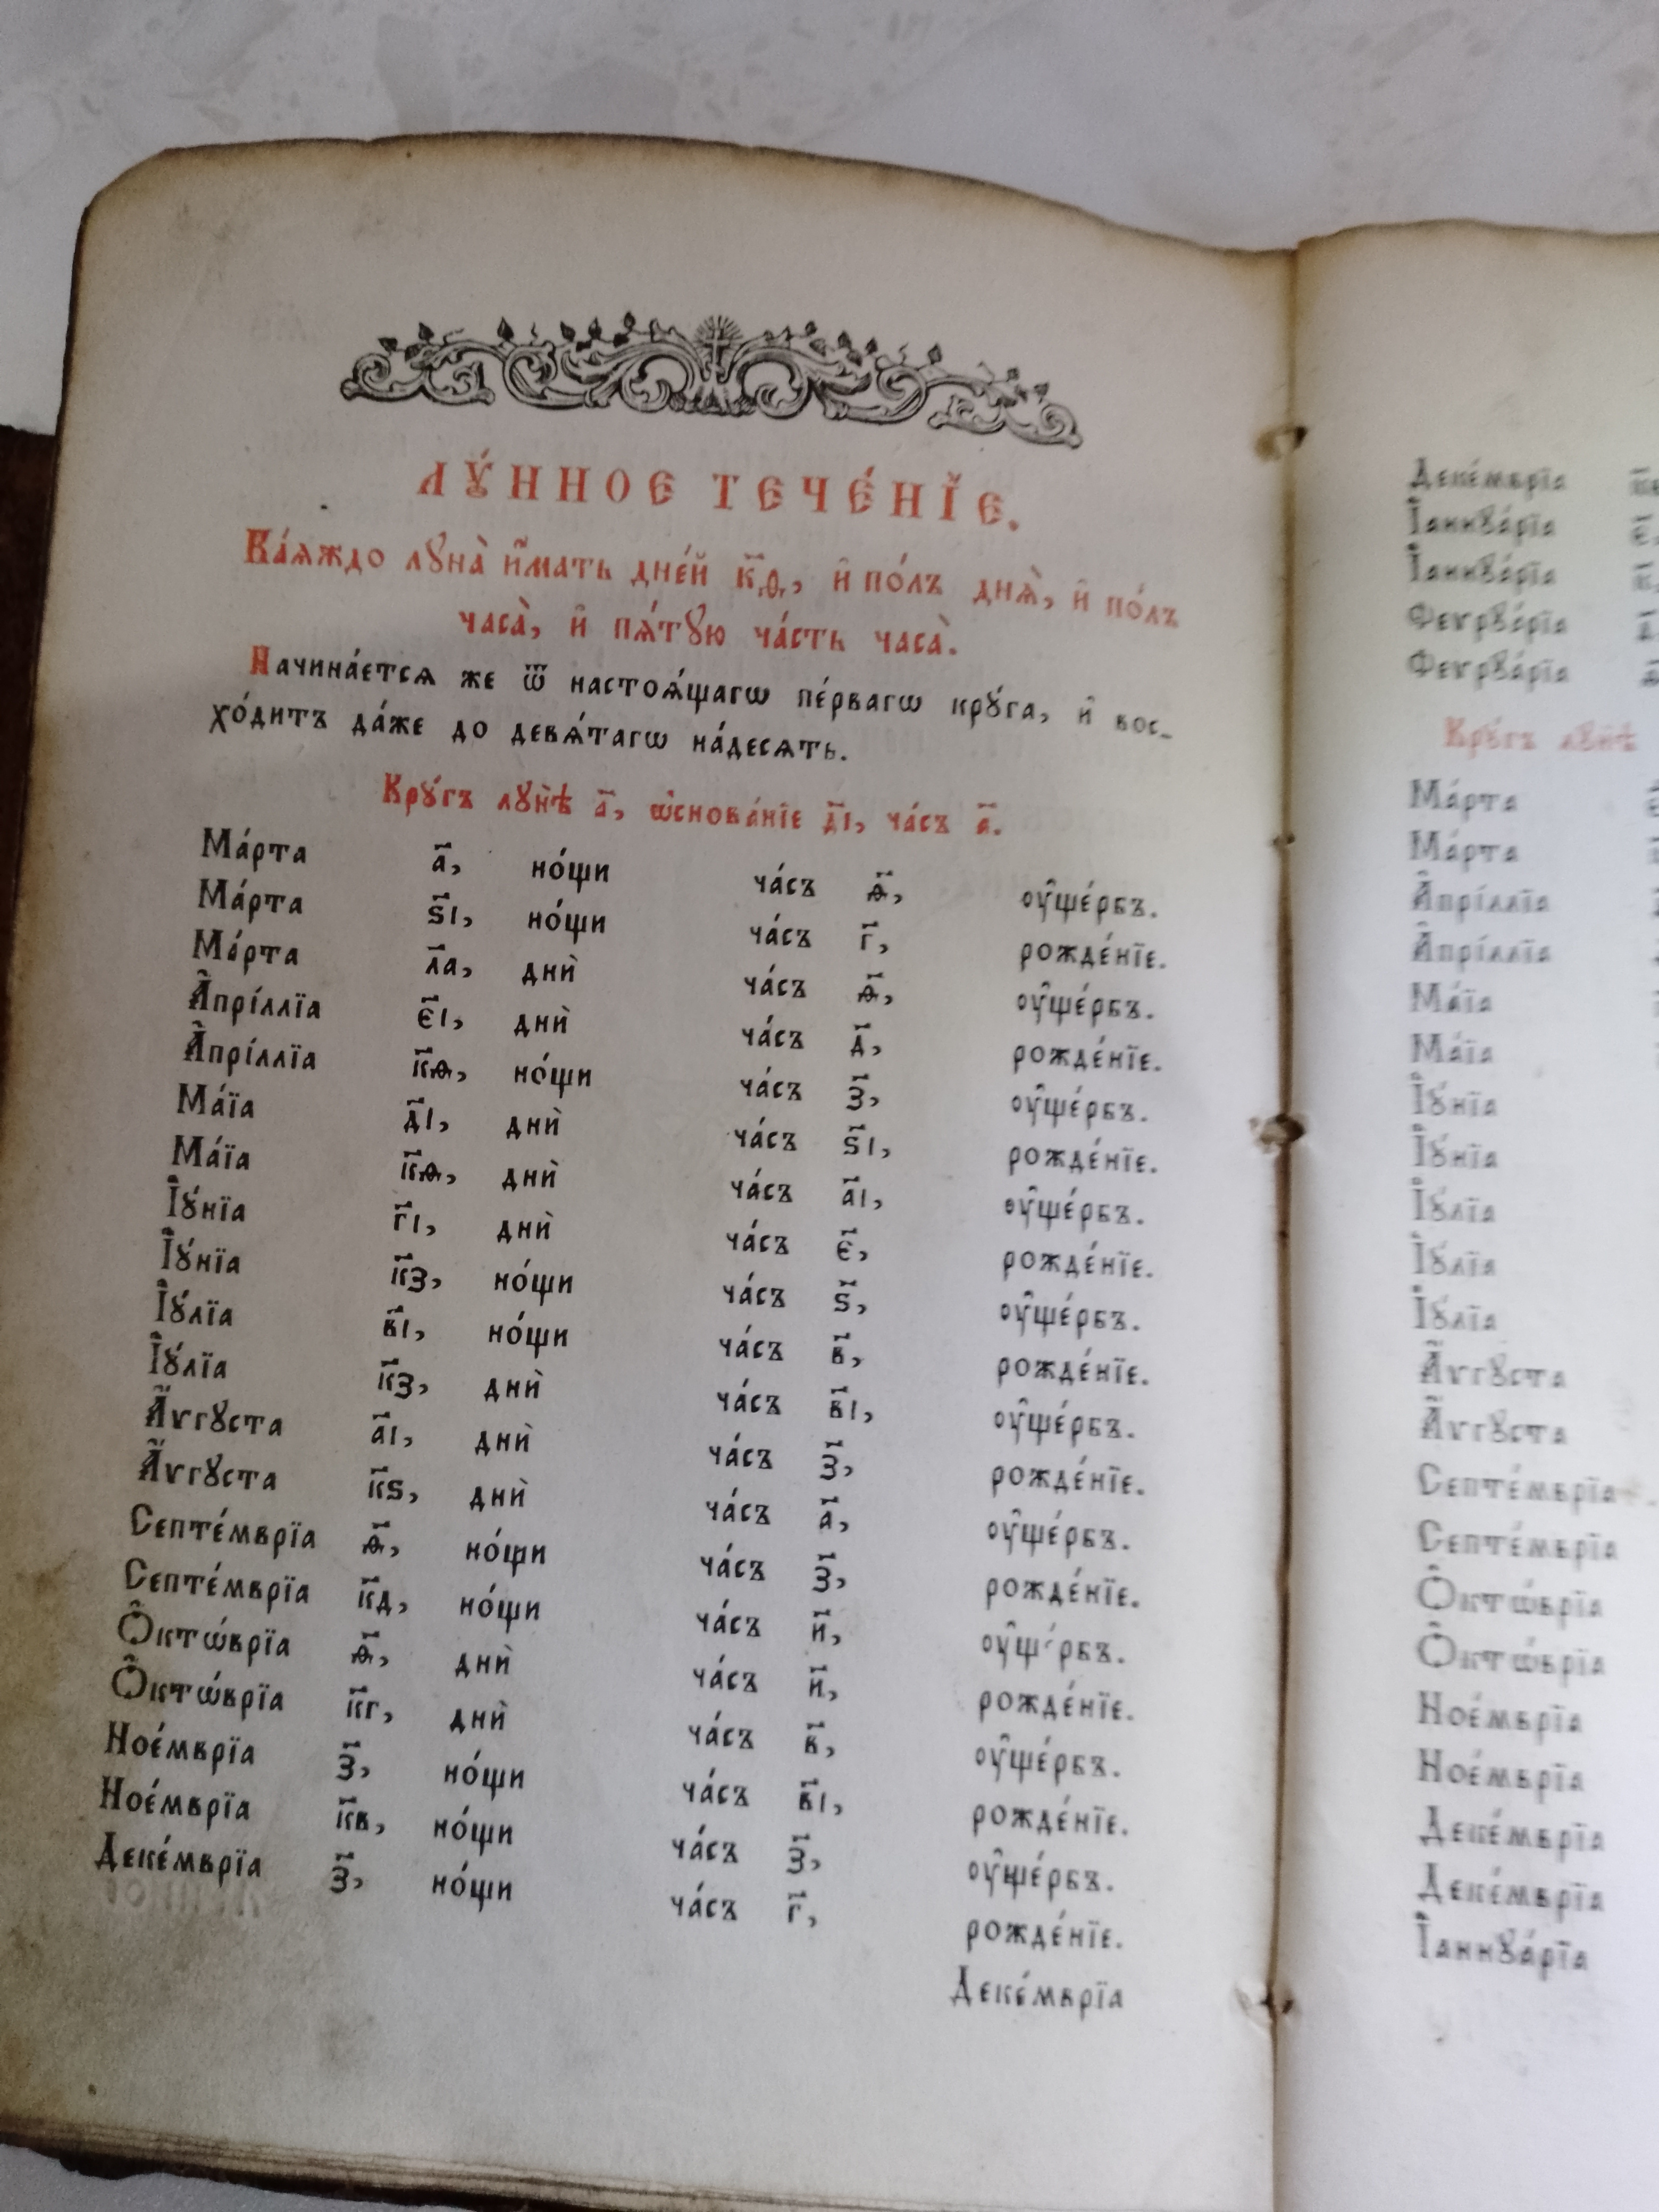 ЛꙊ́ННОЕ ТЕЧЕ́НЇЕ.
Ка́ѧждо лꙋна̀ и҆́мать дне́й к҃ѳ, и҆ по́лъ днѧ̀, и҆ по́лъ
часа̀, и҆ пѧ́тꙋю ча́сть часа̀.
Начина́етсѧ же ѿ настоѧ́щагѡ пе́рвагѡ крꙋ́га, и҆ вос-
хо́дитъ да́же до девѧ́тагѡ на́десѧть.
Крꙋ́гъ лꙋнѣ̀ а҃, ѡ҆снова́нїе д҃і, ча́съ а҃.
Ма́рта а҃, но́щи ча́съ ѳ҃, ᲂу҆ще́рбъ.
Ма́рта ѕ҃і, но́щи ча́съ г҃, рожде́нїе.
Ма́рта л҃а, днѝ ча́съ ѳ҃, ᲂу҆ще́рбъ.
А҆прі́ллїа є҃і, днѝ ча́съ д҃, рожде́нїе.
А҆прі́ллїа к҃ѳ, но́щи ча́съ з҃, ᲂу҆ще́рбъ.
Ма́їа д҃і, днѝ ча́съ ѕ҃і, рожде́нїе.
Ма́їа к҃ѳ, днѝ ча́съ а҃і, ᲂу҆ще́рбъ.
І҆ꙋ́нїа г҃і, днѝ ча́съ є҃, рожде́нїе.
І҆ꙋ́нїа к҃з, но́щи ча́съ ѕ҃, ᲂу҆ще́рбъ.
І҆ꙋ́лїа в҃і, но́щи ча́съ в҃, рожде́нїе.
І҆ꙋ́лїа к҃з, днѝ ча́съ в҃і, ᲂу҆ще́рбъ.
А҆́ѵгꙋста а҃і, днѝ ча́съ з҃, рожде́нїе.
А҆́ѵгꙋста к҃ѕ, днѝ ча́съ а҃, ᲂу҆ще́рбъ.
Септе́мврїа ѳ҃, но́щи ча́съ з҃, рожде́нїе.
Септе́мврїа к҃д, но́щи ча́съ и҃, ᲂу҆щ́рбъ.
Ѻ҆ктѡ́врїа ѳ҃, днѝ ча́съ и҃, рожде́нїе.
Ѻ҆ктѡ́врїа к҃г, днѝ ча́съ в҃, ᲂу҆ще́рбъ.
Ное́мврїа з҃, но́щи ча́съ в҃і, рожде́нїе.
Ное́мврїа к҃в, но́щи ча́съ з҃, ᲂу҆ще́рбъ.
Деке́мврїа з҃, но́щи ча́съ г҃, рожде́нїе.
Деке́мврїа
Деке́мврїа
І҆аннꙋа́рїа
І҆аннꙋа́рїа
Феѵрꙋа́рїа
Феѵрꙋа́рїа
Крꙋ́гъ лꙋнѣ̀
Ма́рта
Ма́рта
А҆прі́ллїа
А҆прі́ллїа
Ма́їа
Ма́їа
І҆ꙋ́нїа
І҆ꙋ́нїа
І҆ꙋ́лїа
І҆ꙋ́лїа
І҆ꙋ́лїа
А҆́ѵгꙋста
А҆́ѵгꙋста
Септе́мврїа
Септе́мврїа
Ѻ҆ктѡ́врїа
Ѻ҆ктѡ́врїа
Ное́мврїа
Ное́мврїа
Деке́мврїа
Деке́мврїа
І҆аннꙋа́рїа